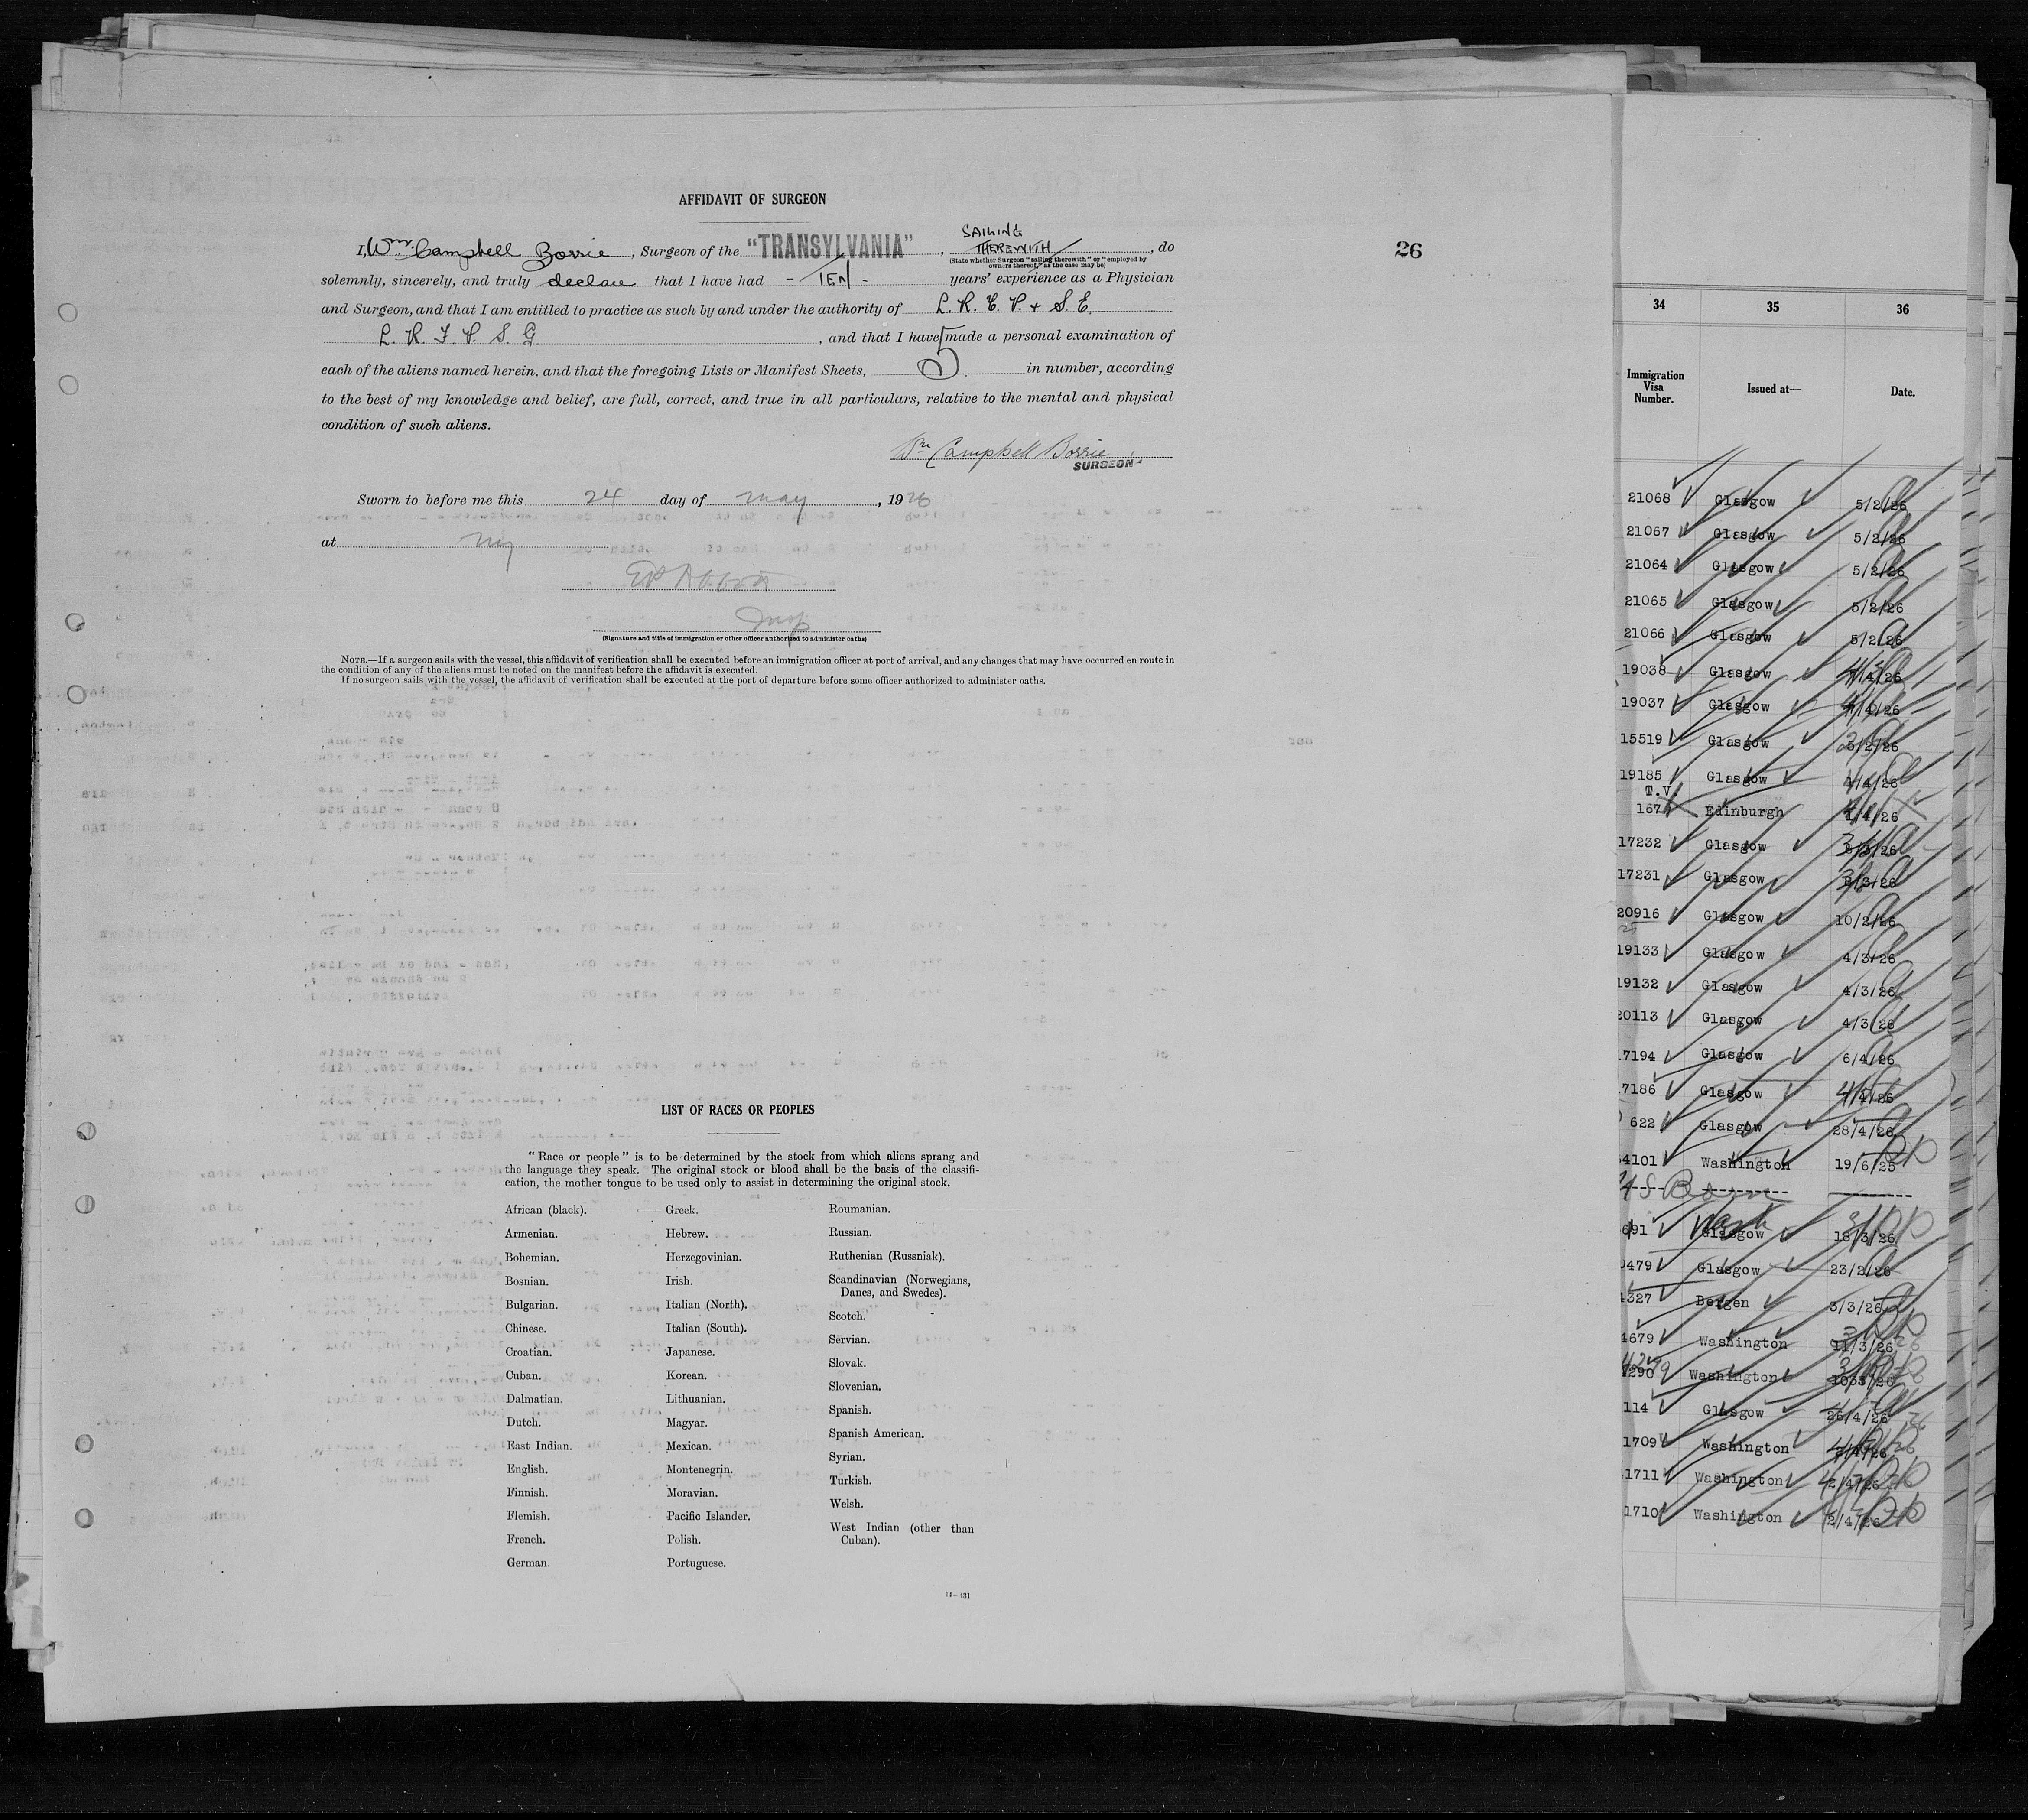 AFFIDAVIT OF SURGEON
I, Wm. Campbell Borrie, Surgeon of the "TRANSYLVANIA", SAILING THEREWITH, do
(State whether Surgeon "sailing therewith" or "employed by owners thereof," as the case may be)
solemnly, sincerely, and truly declare that I have had - TEN - years' experience as a Physician
and Surgeon, and that I am entitled to practice as such by and under the authority of L. R. C. P. & S. E.
L. R. F. P. S. G. , and that I have made a personal examination of
each of the aliens named herein, and that the foregoing Lists or Manifest Sheets, 5 in number, according
to the best of my knowledge and belief, are full, correct, and true in all particulars, relative to the mental and physical
condition of such aliens.
Wm Campbell Borrie
SURGEON
Sworn to before me this 24 day of May, 1926
at NY
Insp
(Signature and title of immigration or other officer authorized to administer oaths)
NOTE.—If a surgeon sails with the vessel, this affidavit of verification shall be executed before an immigration officer at port of arrival, and any changes that may have occurred en route in
the condition of any of the aliens must be noted on the manifest before the affidavit is executed.
If no surgeon sails with the vessel, the affidavit of verification shall be executed at the port of departure before some officer authorized to administer oaths.
26
LIST OF RACES OR PEOPLES
"Race or people" is to be determined by the stock from which aliens sprang and
the language they speak. The original stock or blood shall be the basis of the classifi-
cation, the mother tongue to be used only to assist in determining the original stock.
African (black).
Armenian.
Bohemian.
Bosnian.
Bulgarian.
Chinese.
Croatian.
Cuban.
Dalmatian.
Dutch.
East Indian.
English.
Finnish.
Flemish.
French.
German.
Greek.
Hebrew.
Herzegovinian.
Irish.
Italian (North).
Italian (South).
Japanese.
Korean.
Lithuanian.
Magyar.
Mexican.
Montenegrin.
Moravian.
Pacific Islander.
Polish.
Portuguese.
Roumanian.
Russian.
Ruthenian (Russniak).
Scandinavian (Norwegians,
Danes, and Swedes).
Scotch.
Servian.
Slovak.
Slovenian.
Spanish.
Spanish American.
Syrian.
Turkish.
Welsh.
West Indian (other than
Cuban).
14—431
34 35 36
Immigration
Visa
Number.
Issued at—
Date.
21068 Glasgow 5/2/26
21067 Glasgow 5/2/26
21064 Glasgow 5/2/26
21065 Glasgow 5/2/26
21066 Glasgow 5/2/26
19038 Glasgow
19037 Glasgow
15519 Glasgow
19185 Glasgow 4/4/26
T.V.
167 Edinburgh 1/4/26
17232 Glasgow
17231 Glasgow
20916 Glasgow 10/2/26
19133 Glasgow 4/3/26
19132 Glasgow 4/3/26
20113 Glasgow 4/3/26
7194 Glasgow 6/4/26
7186 Glasgow
622 Glasgow 28/4/26
4101 Washington 19/6/25
US Born
691 Wash Glasgow 18/3/26
479 Glasgow 23/2/26
327 Bergen 3/3/26
4679 Washington 11/3/26
290 Washington
114 Glasgow 26/4/26
1709 Washington
1711 Washington 2/4/26
1710 Washington 2/4/26